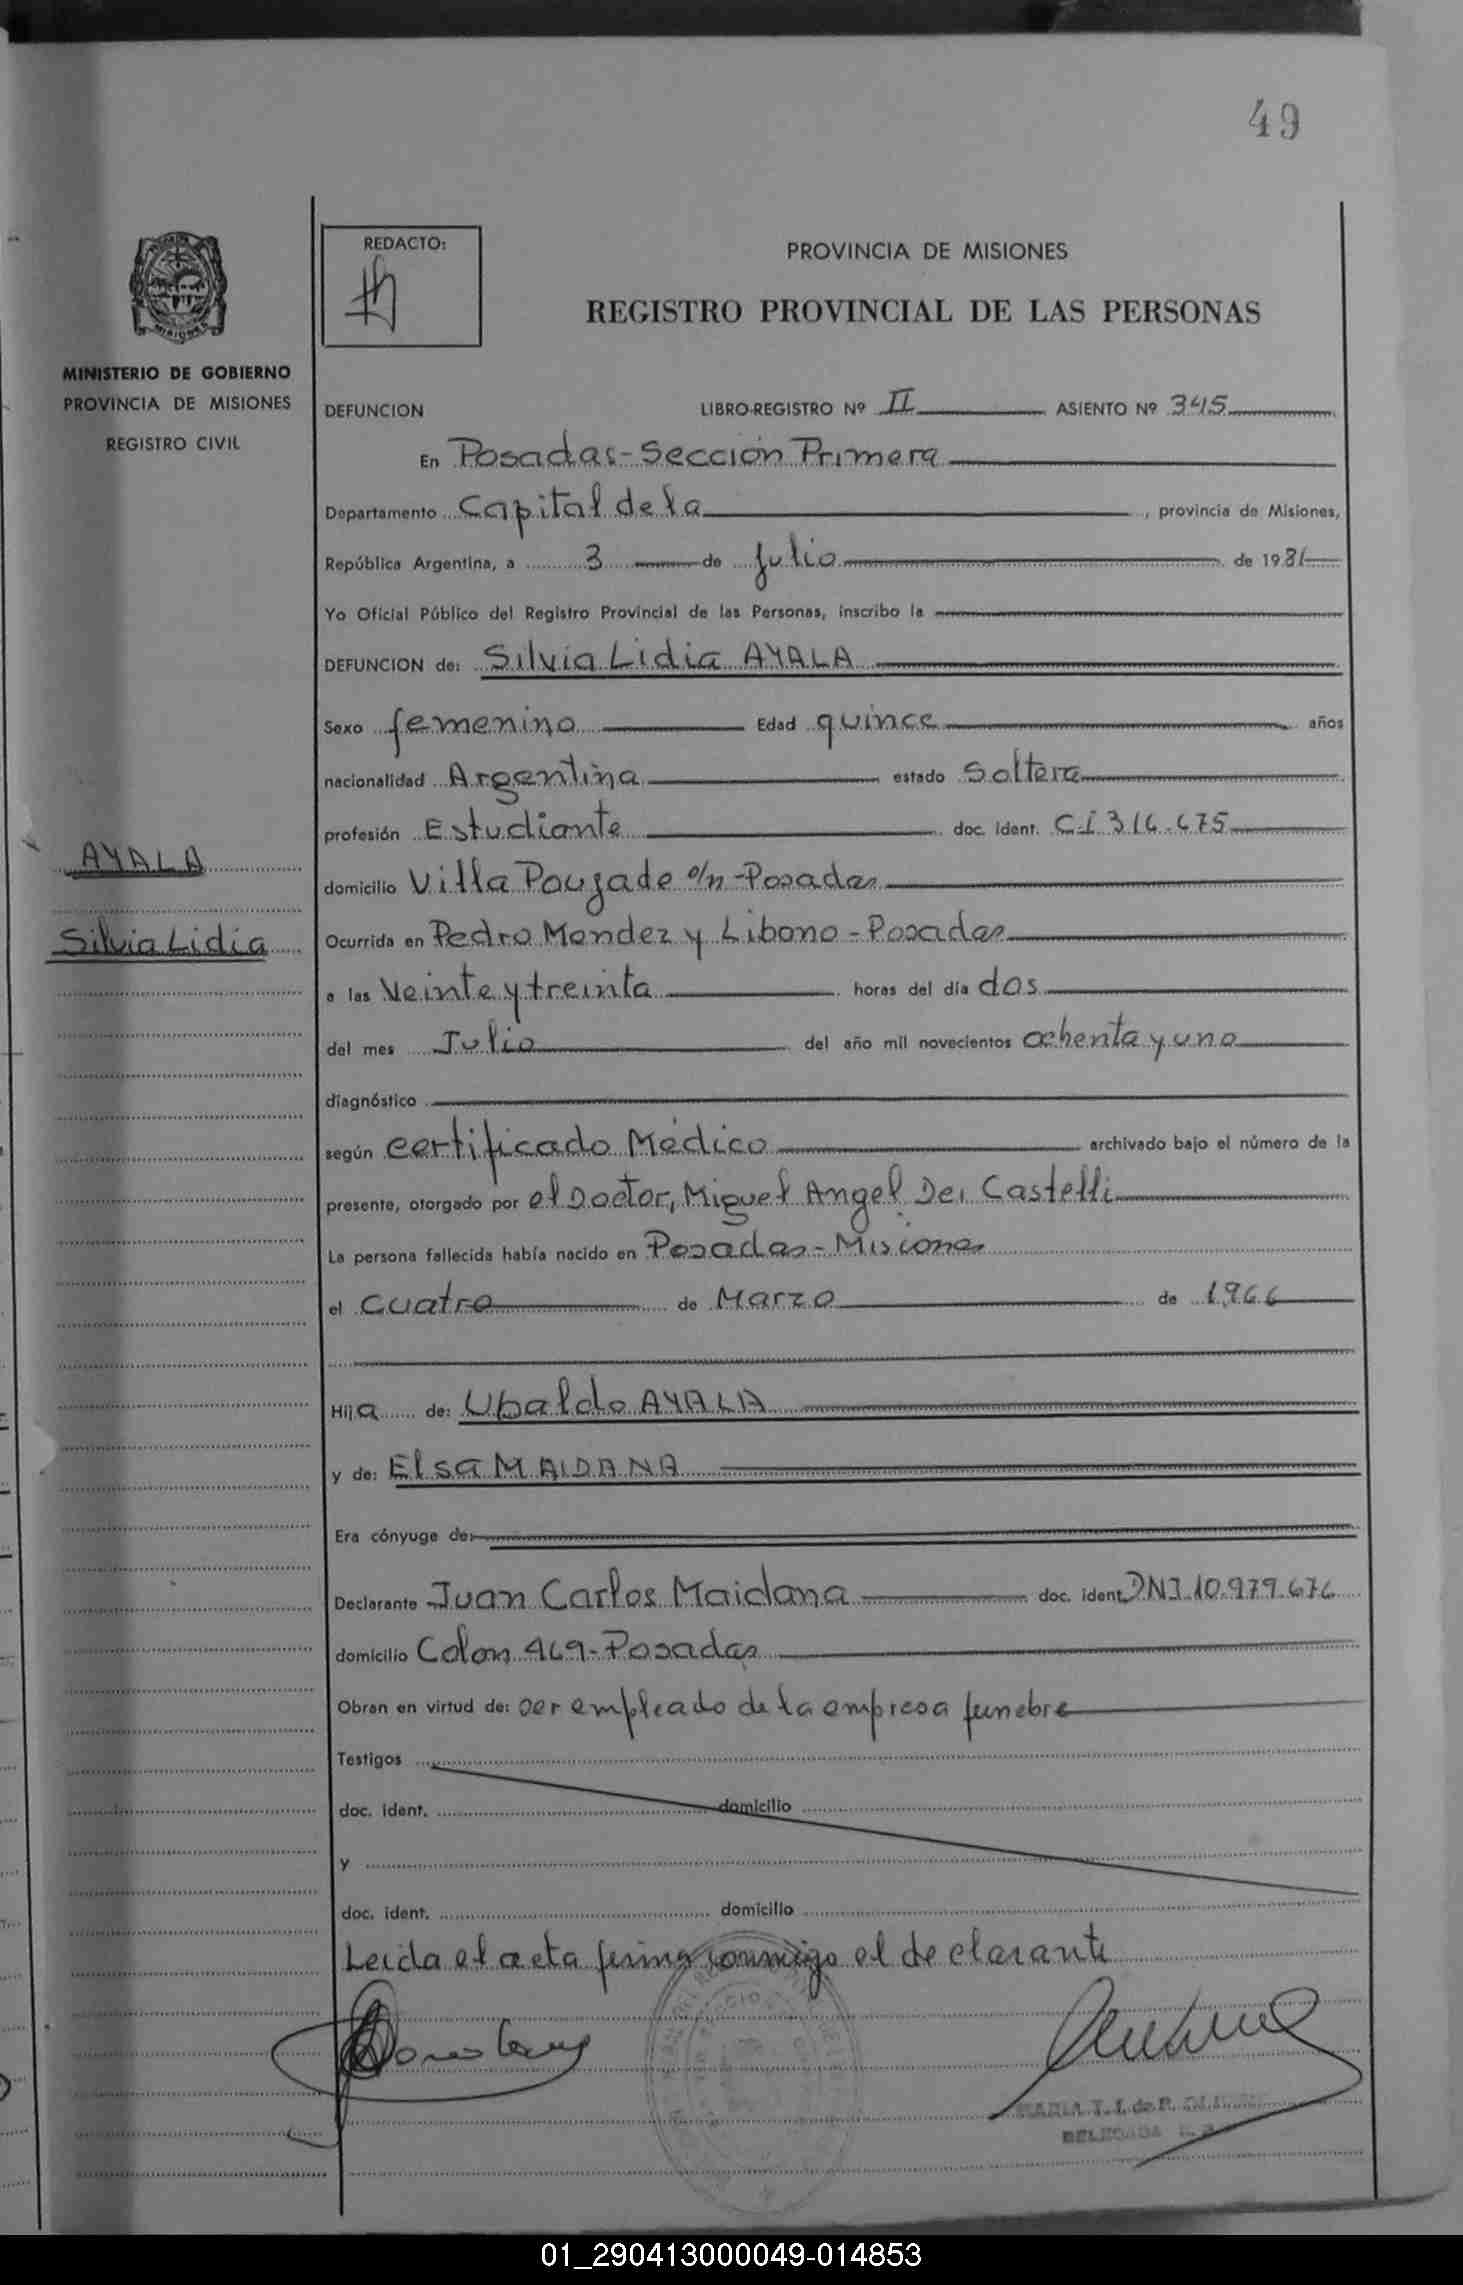 49
REDACTO:
PROVINCIA DE MISIONES
REGISTRO PROVINCIAL DE LAS PERSONAS
MINISTERIO DE GOBIERNO
PROVINCIA DE MISIONES
REGISTRO CIVIL
AYALA
Silvia Lidia
DEFUNCION LIBRO-REGISTRO Nº II ASIENTO Nº 345
En Posadas-Sección Primera
Departamento Capital de la, provincia de Misiones,
República Argentina, a 3 de Julio de 1981
Yo Oficial Público del Registro Provincial de las Personas, inscribo la
DEFUNCION de: Silvia Lidia AYALA
Sexo femenino Edad quince años
nacionalidad Argentina estado Soltera
profesión Estudiante doc. ident. C.I 316.675
domicilio Villa Pouzade s/n-Posadas
Ocurrida en Pedro Mendez y Libono-Posadas
a las Veinte y treinta horas del día dos
del mes Julio del año mil novecientos ochenta y uno
diagnóstico
según certificado Médico archivado bajo el número de la
presente, otorgado por el Doctor, Miguel Angel Dei Castelli
La persona fallecida había nacido en Posadas-Misiones
el cuatro de Marzo de 1966
Hija de: Ubaldo AYALA
y de: Elsa MAIDANA
Era cónyuge de:
Declarante Juan Carlos Maidana doc. ident. DNI.10.979.676
domicilio Colon 469-Posadas
Obran en virtud de: ser empleado de la empresa funebre
Testigos
doc. ident. domicilio
y
doc. ident. domicilio
Leida el acta firma conmigo el declarante
MARIA T. I. de P.
DELEGADA
01_290413000049-014853